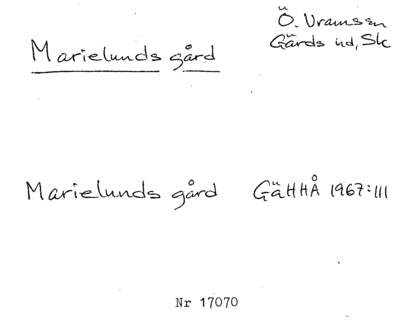 Marielunds gård
Ö. Vramssn
Gärds hd, Sk
Marielunds gård GäHHÅ 1967:III
Nr 17070